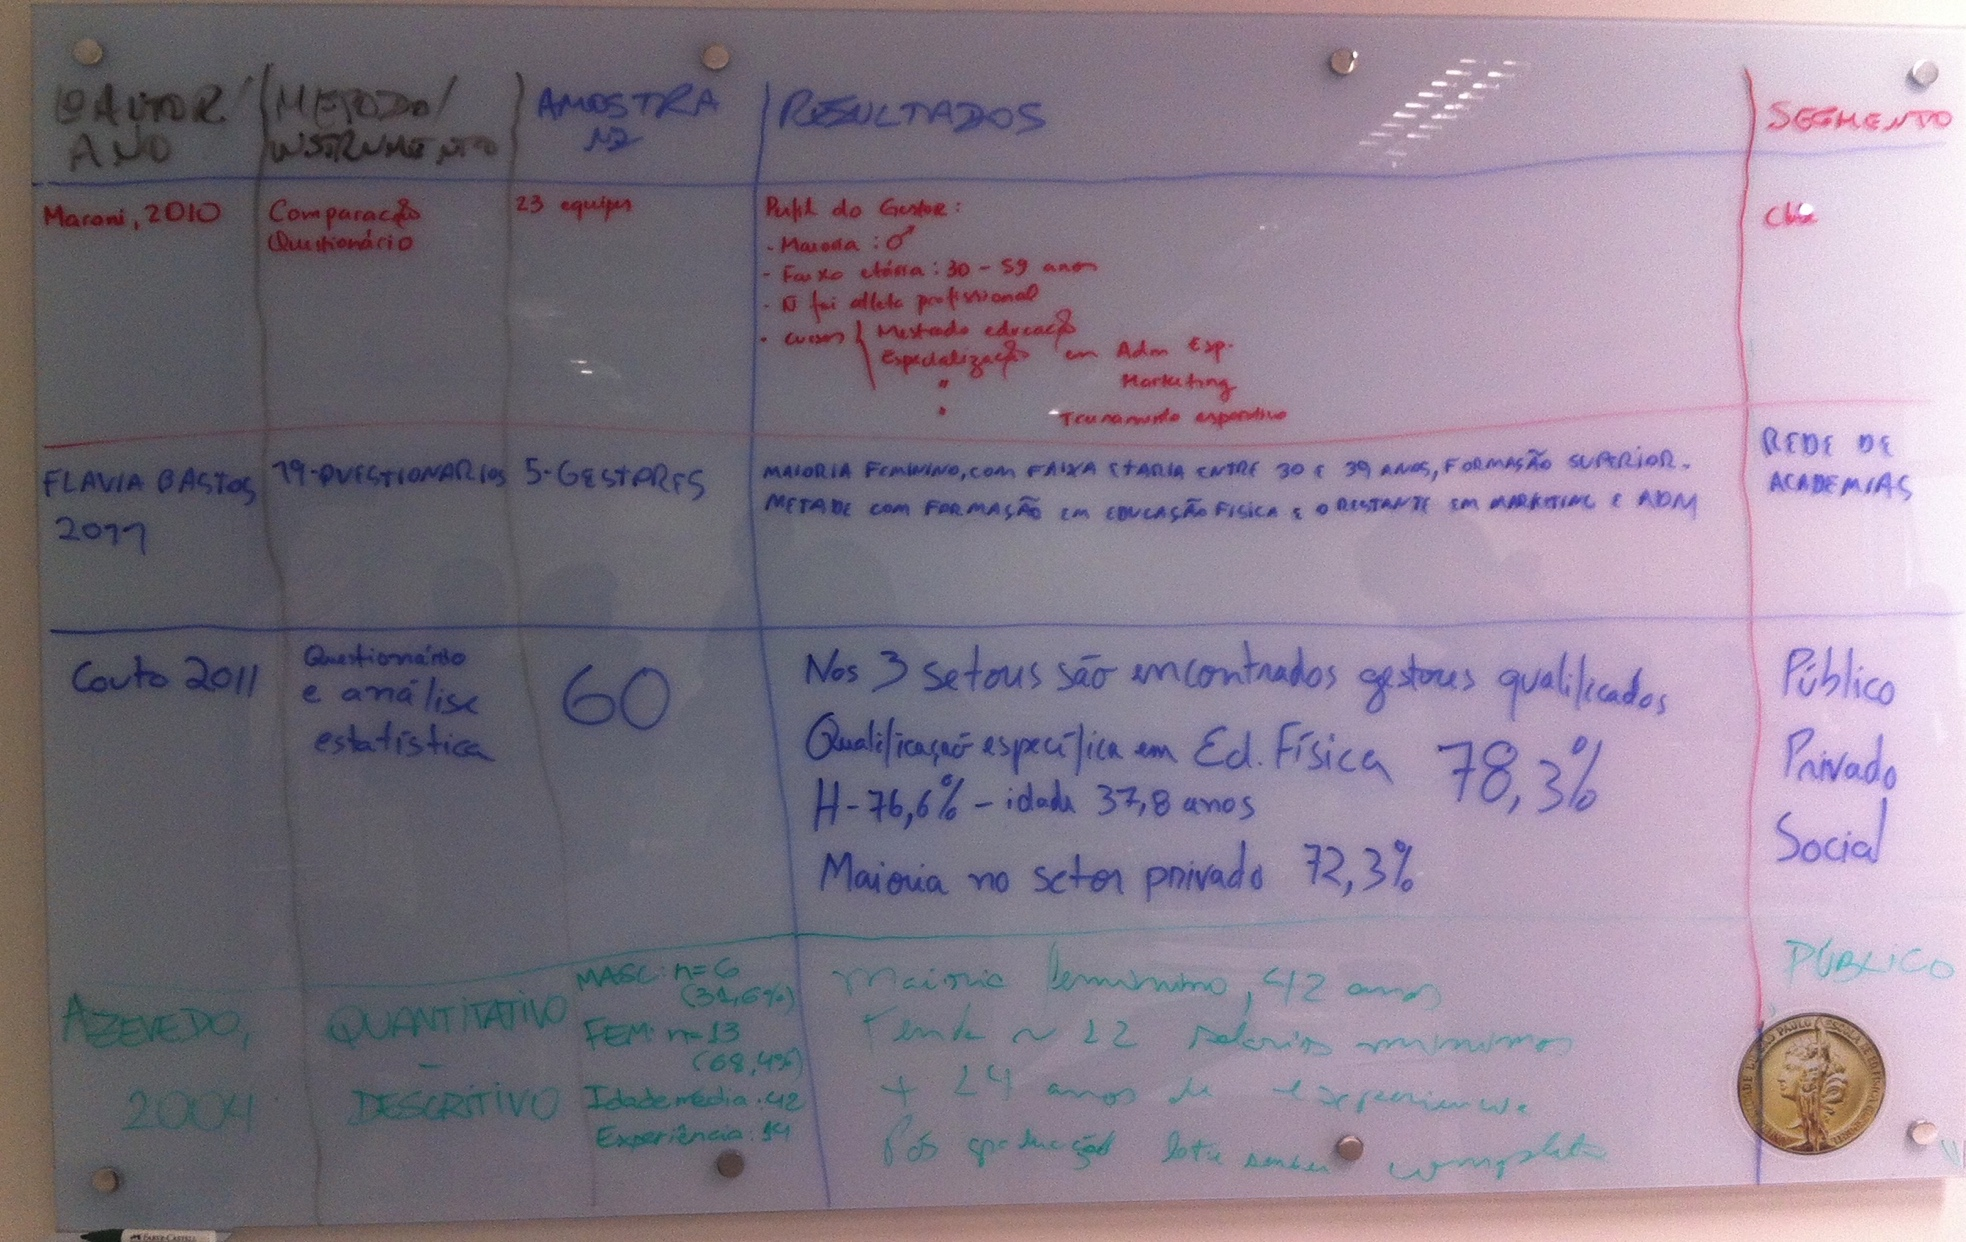 1º AUTOR/
ANO
MÉTODO/
INSTRUMENTO
AMOSTRA
Nº
RESULTADOS
SEGMENTO
Maroni, 2010
Comparação
Questionário
23 equipes
Perfil do Gestor:
- Maioria : ♂
- Faixa etária : 30 - 59 anos
- Ñ foi atleta profissional
- cursos { Mestrado educação
Especialização em Adm Esp.
" Marketing
" Treinamento esportivo
Clube
FLAVIA BASTOS
2011
19-QUESTIONARIOS
5-GESTORES
MAIORIA FEMININO, COM FAIXA ETARIA ENTRE 30 E 39 ANOS, FORMASÃO SUPERIOR.
METADE COM FORMASÃO EM EDUCASÃO FISICA E O RESTANTE EM MARKETING E ADM
REDE DE
ACADEMIAS
Couto 2011
Questionário
e análise
estatística
60
Nos 3 setores são encontrados gestores qualificados
Qualificação específica em Ed. Física 78,3%
H - 76,6% - idade 37,8 anos
Maioria no setor privado 72,3%
Público
Privado
Social
AZEVEDO,
2004
QUANTITATIVO
-
DESCRITIVO
MASC: n=6
(31,6%)
FEM: n=13
(68,4%)
Idade média: 42
Experiência: 14
Maioria feminino, 42 anos
Renda ~ 12 salários mínimos
+ 14 anos de experiência
Pós graduação latu sensu completa
PÚBLICO
FABER-CASTELL